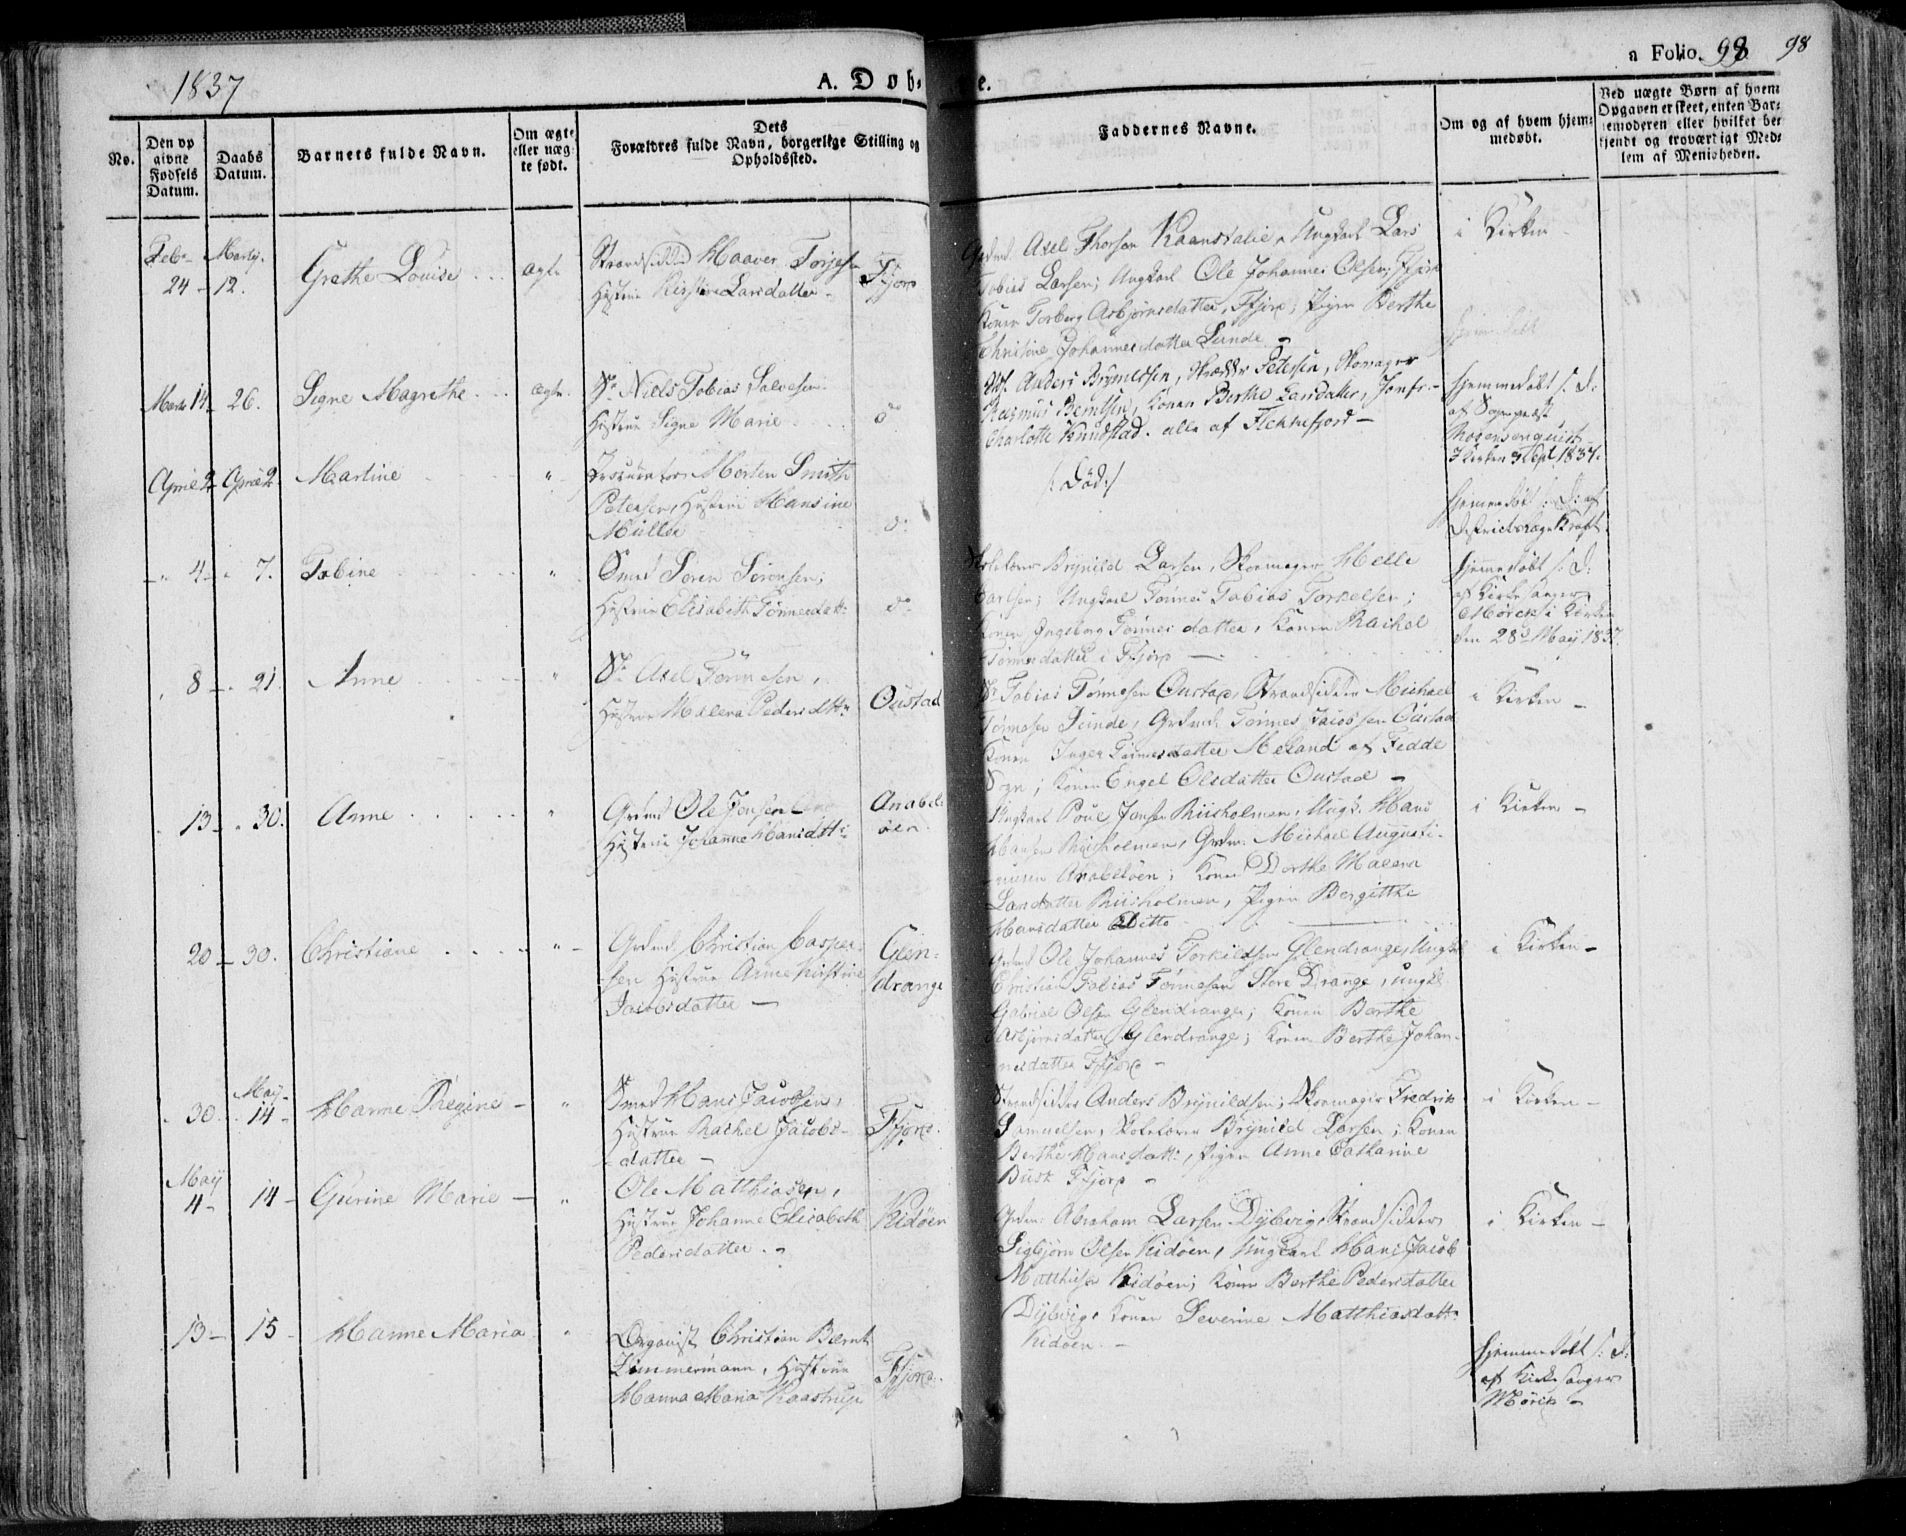 1837
A. Døb-
e.
a Folio. 98
98
No.
Den op
givne
Fødsels
Datum.
Daabs
Datum.
Barnets fulde Navn.
Om ægte
eller uæg-
te født.
Dets
Forældres fulde Navn, borgerlige Stilling og
Opholdssted.
Faddernes Navne.
Om og af hvem hjem-
medøbt.
Ved uægte Børn af hvem
Opgaven er skeet, enten Bar-
nemoderen eller hvilket be-
kjendt og troværdigt Med-
lem af Menigheden.
Feb. 24 - Martz 12. Grethe Louise ægte
Strandsidder Haaver Torjesen
Hustrue Kirstine Larsdatter -
Ffjord
Grdmd. Axel Thorsen, Ungkarl Lars
Tobias Larsen; Ungkarl Ole Johannes Olsen, Ffjord
Konen Torborg Asbjørnsdatter, Ffjord; Pigen Berthe
Christine Johannesdatter Lunde -
i Kirken -
Martz 14 - 26. Signe Magrethe ægte.
Sr. Niels Tobias Salvesen
Hustrue Signe Marie
do
Anders Brynildsen, Skrædder Petersen, Skomager
Rasmus Berntsen, Konen Berthe Larsdatter, Jomfr.
Charlotte Knudstad. alle af Flekkefjord -
hjemmedøbt s: d:
af Sogneprest
Kirken 3 Sept 1837.
April 2 - April 2 Martine "
Procurator Morten Smith
Petersen, Hustrue Hansine
Müller
do
/: Død :/
hjemmedøbt s: D: af
Districtslæge Kraft
" 4 - " 7. Tobine "
Smed Søren Sørensen;
Hustrue Elisabeth Tønnesdatt:
do
Skolelærer Brynild Larsen, Skomager Helle
Carlsen; Ungkarl Tønnes Tobias Torkelsen;
Konen Ingeborg Tønnesdatter, Konen Rachel
Tønnesdatter i Ffjord -
hjemmedøbt s: d:
af Kirkesanger
Mørck i Kirken
den 28de May 1837
" 8 - " 21. Anne "
Sr. Axel Tønnesen,
Hustrue Malena Pedersdttr
Oustad
Sr. Tobias Tønnesen Oustad, Strandsidder Michael
Tønnesen Lunde, Grdmd. Tønnes Jacobsen Oustad
Konen Inger Tønnesdatter Meland af Fedde
Sogn; Konen Engel Olsdatter Oustad -
i Kirken -
" 13 - " 30. Anne "
Grdmd Ole Jensen
Hustrue Johanne Hansdttr
Anabel-
øen.
Ungkarl Poul Jensen Riisholmen, Ungk. Hans
Hansen Riisholmen, Grdm. Michael Augusti-
nusen Anabeløen; Konen Dorthe Malena
Larsdatter Riisholmen, Pigen Bergitthe
Hansdatter Ditto
i Kirken -
20 - 30. Christiane "
Grdmd Christian Casper-
sen Hustrue Anne Kirstine
Jacobsdatter -
Glen-
drange
Grdmd Ole Johannes Torkildsen Glendrange, Ungkl
Christian Tobias Tønnesen Store Drange, ungkl
Gabriel Olsen Glendrange; Konen Berthe
Asbjørnsdatter Glendrange; Konen Berthe Johan-
nesdatter Ffjord -
i Kirken -
" 30. May 14 - Hanne Regine - "
Smed Hans Jacobsen,
Hustrue Rachel Jacobs-
datter -
Ffjord.
Strandsidder Anders Brynildsen; Skomager Fredrik
Samuelsen, Skolelærer Brynild Larsen; Konen
Berthe Hansdatt:, Pigen Anne Catharine
Busk Ffjord -
i Kirken -
May 4 - 14 - Gurine Marie - "
Ole Matthiasen,
Hustrue Johanne Elisabeth
Pedersdatter. -
Kidøen
Grdm: Abraham Larsen Dybvig, Strandsidder
Sigbjørn Olsen Kidøen, Ungkarl Hans Jacob
Matthisen Kidøen; Konen Berthe Pedersdatter
Dybvig, Konen Severine Matthiasdatt:
Kidøen. -
i Kirken -
13 - 15 - Hanne Maria "
Organist Christian Bernt
Zimmermann, Hustrue
Hanna Maria Kaastrup
Ffjord.
hjemmedøbt s: d:
af Kirkesanger
Mørck -